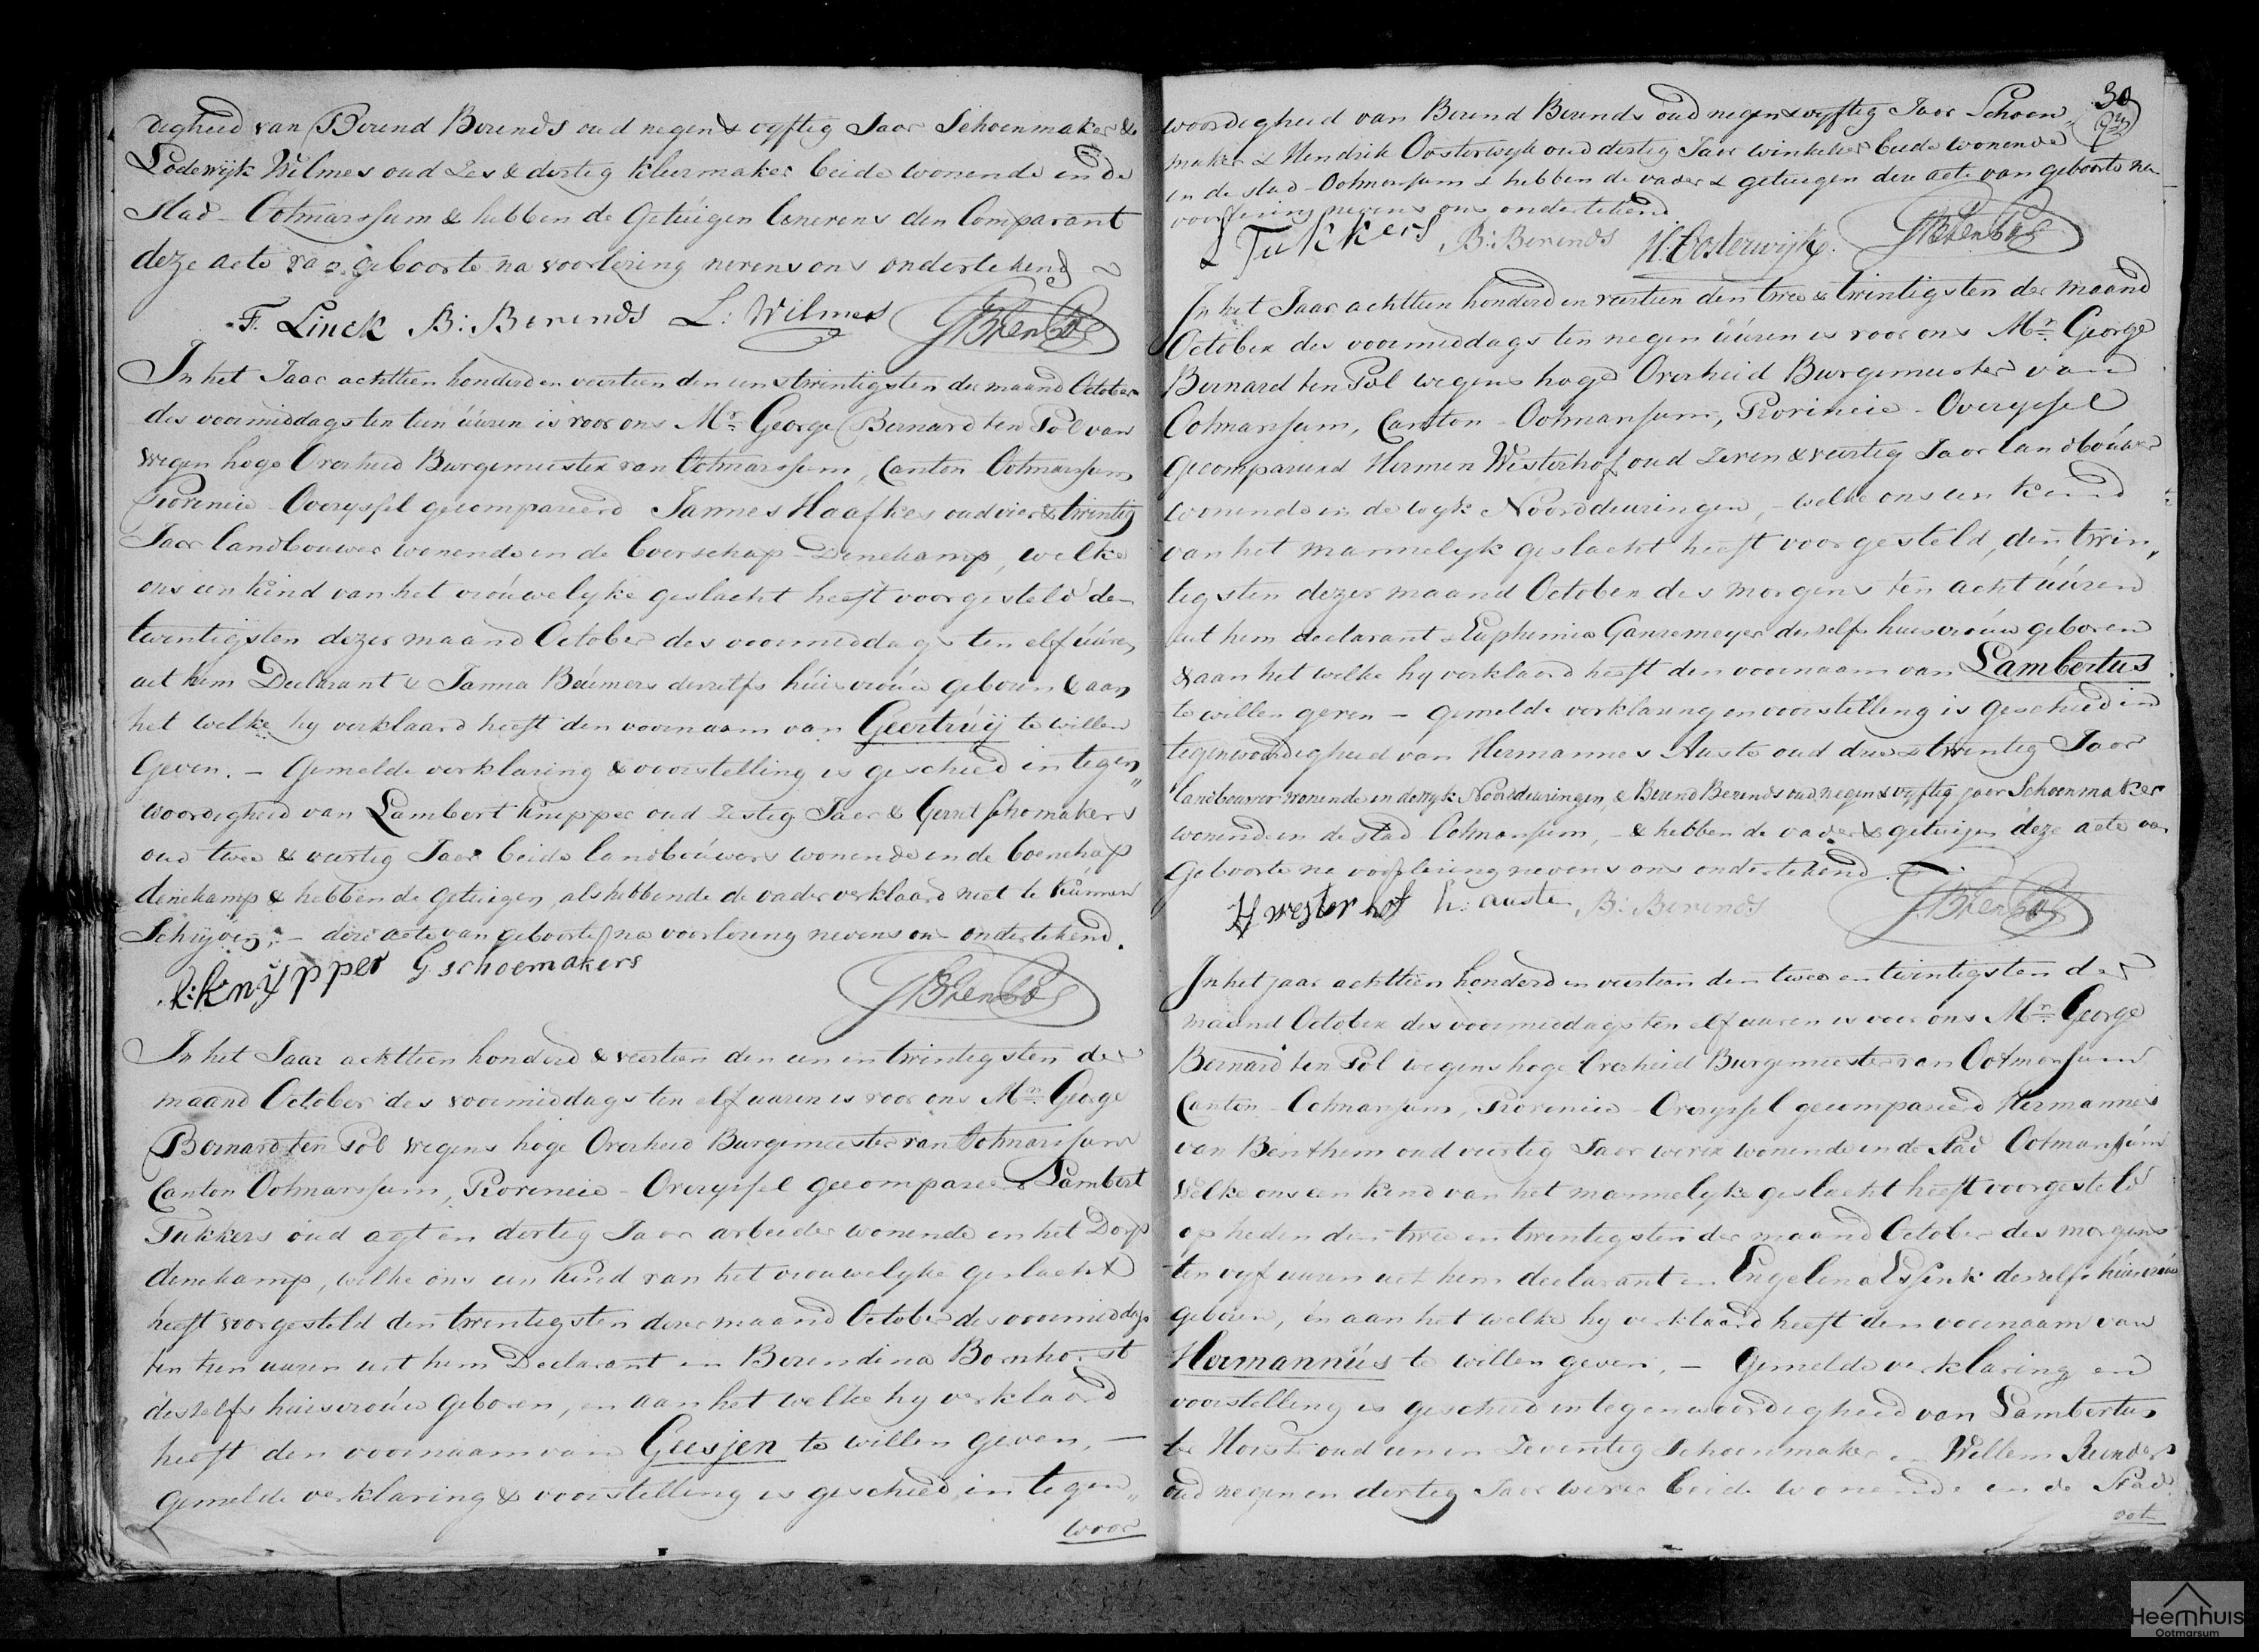 digheid van Berend Berends oud negen & vyftig Jaar Schoenmaker &
Lodewyk Wilmes oud Zes & dertig kleermaker beide wonende in de
Stad Ootmarssum & hebben de Getuigen benevens den Comparant
deze acte van geboorte na voorlezing nevens ons ondertekend
F. Linck B: Berends L: Wilmes GBtenPol
In het Jaar achttien honderd en veertien den een & twintigsten der maand October
des voormiddags ten tien uuren is voor ons Mr. George Bernard ten Pol van
wegen hoge Overheid Burgemeester van Ootmarssum, Canton Ootmarssum
Provincie Overyssel gecompareerd Jannes Haafkes oud vier & twintig
Jaar landbouwer wonende in de boerschap Denekamp, welke
ons een kind van het vrouwelyke geslacht heeft voorgesteld de
twintigsten dezer maand October des voormiddags ten elf uuren
uit hem Declarant & Janna Beumers deszelfs huisvrouw geboren & aan
het welke hy verklaard heeft den voornaam van Geertruij te willen
Geven. – Gemelde verklaring & voorstelling is geschied in tegen„
woordigheid van Lambert Knipper oud Zestig Jaar & Gerrit Schomakers
oud twee & veertig Jaar beide landbouwers wonende in de boerschap
denekamp & hebben de getuigen, als hebbende de vader verklaard niet te kunnen
Schryven, – deze acte van geboorte na voorlezing nevens ons ondertekend.
L: Knÿpper G schoemakers GBtenPol
In het Jaar achttien honderd & veertien den een en twintigsten der
maand October des voormiddags ten elf uuren is voor ons Mr. George
Bernard ten Pol wegens hoge Overheid Burgemeester van Ootmarssum
Canton Ootmarssum, Provincie – Overyssel gecompareerd Lambert
Tukkers oud agt en dertig Jaar arbeider wonende in het Dorp
denekamp, welke ons een kind van het vrouwelyke geslacht
heeft voorgesteld den twintigsten dezer maand October des voormiddags
ten tien uuren uit hem Declarant en Berendina Bornhorst
deszelfs huisvrouw geboren, en aan het welke hy verklaard
heeft den voornaam van Geesjen te willen geven, –
Gemelde verklaring & voorstelling is geschied in tegen„
woor
30
woordigheid van Berend Berends oud negen & vyftig Jaar Schoen„
maker & Hendrik Oosterwyk oud dertig Jaar winkelier beide wonende
in de stad Ootmarssum & hebben de vader & getuigen deze acte van geboorte na
voorlezing nevens ons ondertekend
L Tukkers B: Berends H. Oosterwijk GBtenPol
In het Jaar achttien honderd en veertien den twee & twintigsten der maand
October des voormiddags ten negen uuren is voor ons Mr. George
Bernard ten Pol wegens hoge Overheid Burgemeester van
Ootmarssum, Canton – Ootmarssum, Provincie – Overyssel
gecompareerd Hermen Westerhof oud zeven & veertig Jaar landbouwer
wonende in de wyk Noorddeuringen, – welke ons een kind
van het mannelyk geslacht heeft voorgesteld, den twin„
tigsten dezer maand October des morgens ten acht uuren
uit hem declarant & Euphemia Gansemeyer deszelfs huisvrouw geboren
& aan het welke hy verklaard heeft den voornaam van Lambertus
te willen geven – gemelde verklaring en voorstelling is geschied in
tegenwoordigheid van Hermannes Auste oud drie & twintig Jaar
landbouwer wonende in de wyk Noorddeuringen, & Berend Berends oud negen & vyftig jaar Schoenmaker
wonende in de stad Ootmarssum, – & hebben de vader & getuigen deze acte van
Geboorte na voorlezing nevens ons ondertekend.
H westerhof h: auste B: Berends GBtenPol
In het jaar achttien honderd en veertien den twee en twintigsten der
maand October des voormiddags ten elf uuren is voor ons Mr. George
Bernard ten Pol wegens hoge Overheid Burgemeester van Ootmarssum
Canton – Ootmarssum, Provincie – Overyssel gecompareerd Hermannes
van Benthem oud veertig Jaar wever wonende in de Stad Ootmarssum
Welke ons een kind van het mannelyke geslacht heeft voorgesteld
op heden den twee en twintigsten der maand October des morgens
ten vyf uuren uit hem declarant en Engelina Essink deszelfs huisvrouw
geboren, en aan het welke hy verklaard heeft den voornaam van
Hermannus te willen geven. – Gemelde verklaring en
voorstelling is geschied in tegenwoordigheid van Lambertus
te Horst oud een en Zeventig Schoenmaker en Willem Reinders
oud negen en dertig Jaar wever beide wonende in de Stad
oot
Heemhuis
Ootmarsum